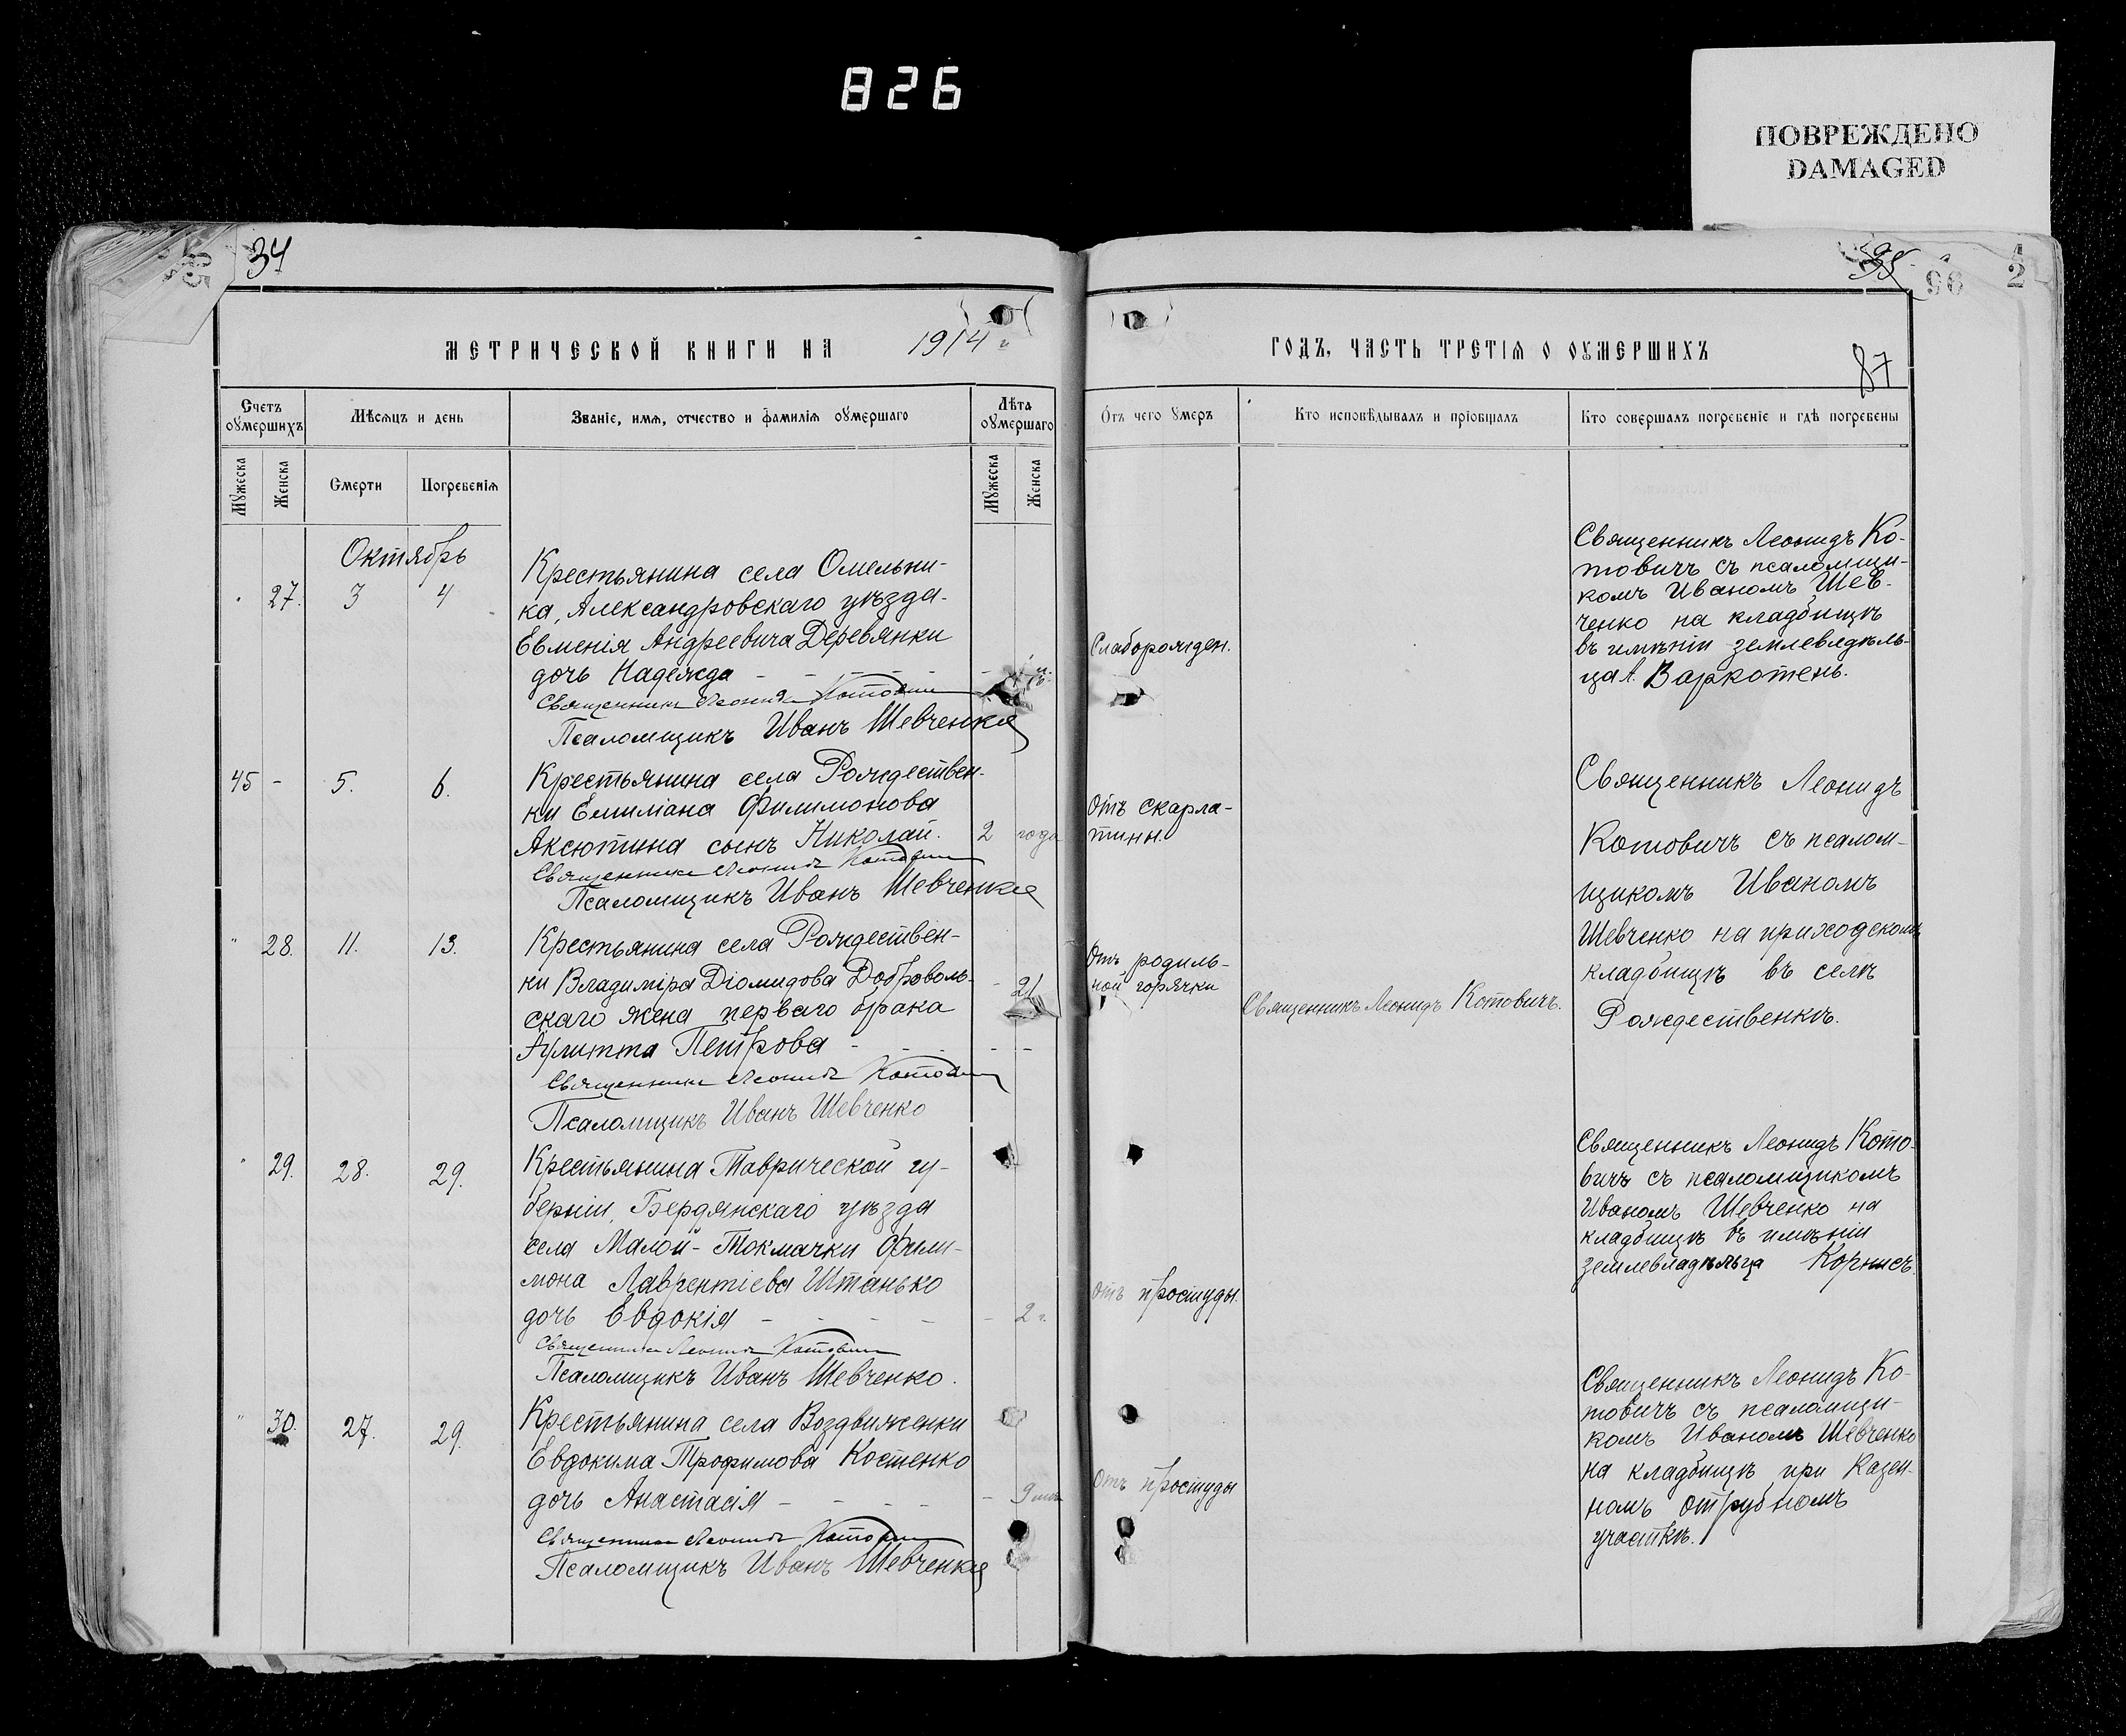 826
ПОВРЕЖДЕНО
DAMAGED
34
96
2
МЕТРИЧЕСКОЙ КНИГИ НА 1914
ГОДЪ, ЧАСТЬ ТРЕТІЯ О ОУМЕРШИХЪ
87
Счетъ оумершихъ
Мѣсяцъ и день
Званіе, имя, отчество и фамилія оумершаго
Лѣта оумершаго
Отъ чего умеръ
Кто исповѣдывалъ и пріобщалъ
Кто совершалъ погребеніе и гдѣ погребены
Мужеска
Женска
Смерти
Погребенія
Мужеска
Женска
Октябрь
27. 3 4
Крестьянина села Омельни-
ка, Александровскаго уѣзда
Евменія Андреевича Деревянки
дочь Надежда
Священникъ Леонидъ Котовичъ
Псаломщикъ Иванъ Шевченко
Слаборожден.
Священникъ Леонидъ Ко-
товичъ съ псаломщи-
комъ Иваномъ Шев-
ченко на кладбищѣ
въ имѣніи землевладѣль-
ца А. Варкотень.
45 - 5. 6.
Крестьянина села Рождествен-
ки Емиліана Филимонова
Аксютина сынъ Николай. 2 года
Священникъ Леонидъ Котовичъ
Псаломщикъ Иванъ Шевченко
Отъ скарла-
тины.
Священникъ Леонидъ
Котовичъ съ псалом-
щикомъ Иваномъ
Шевченко на приходскомъ
кладбищѣ въ селѣ
Рождественкѣ.
" 28. 11. 13.
Крестьянина села Рождествен-
ки Владиміра Діомидова Доброволь-
скаго жена перваго брака
Іулитта Петрова
21
Священникъ Леонидъ Котовичъ
Псаломщикъ Иванъ Шевченко
Отъ родиль-
ной горячки
Священникъ Леонидъ Котовичъ.
" 29. 28. 29.
Крестьянина Таврической гу-
берніи, Бердянскаго уѣзда
села Малой-Токмачки Фили-
мона Лаврентіева Штанько
дочь Евдокія - - - - - 2 г.
Священникъ Леонидъ Котовичъ
Псаломщикъ Иванъ Шевченко.
Отъ простуды.
Священникъ Леонидъ Кото-
вичъ съ псаломщикомъ
Иваномъ Шевченко на
кладбищѣ въ имѣніи
землевладѣльца Корнисъ.
" 30. 27. 29.
Крестьянина села Воздвиженки
Евдокима Трофимова Костенко
дочь Анастасія - - - - - 9 мѣс
Священникъ Леонидъ Котовичъ
Псаломщикъ Иванъ Шевченко
Отъ простуды
Священникъ Леонидъ Ко-
товичъ съ псаломщи-
комъ Иваномъ Шевченко
на кладбищѣ при Казен-
номъ отрубномъ
участкѣ.